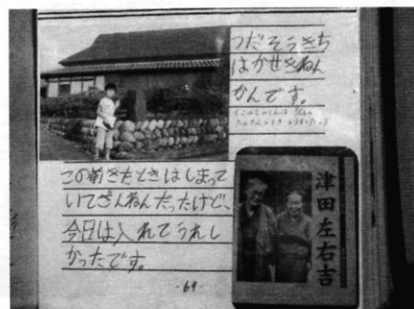 つだそうきち
はかせきねん
かんです。
この前きたときはしまって
いてざんねんだったけど、
今日は入れてうれし
かったです。
津田左右吉
-69-